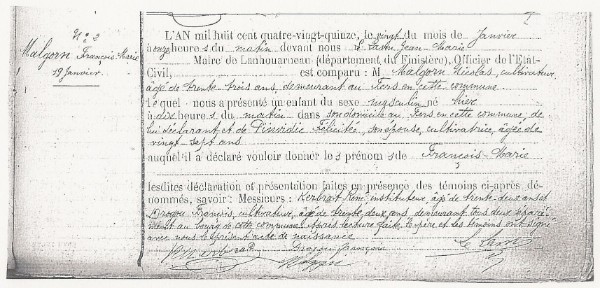 Nº 3
Malgorn François Marie
19 Janvier.
L'AN mil huit cent quatre-vingt-quinze, le vingt du mois de Janvier
à onze heures du matin devant nous Jean Marie
Maire de Lanhouarneau (département du Finistère), Officier de l'État-
Civil, est comparu : M Malgorn Nicolas, cultivateur,
âgé de trente trois ans, demeurant au Fers en cette commune
lequel nous a présenté un enfant du sexe masculin né hier
à dix heures du matin dans son domicile au Fers en cette commune, de
lui déclarant et de Félicité, son épouse, cultivatrice, âgée de
vingt-sept ans
auquel il a déclaré vouloir donner les prénoms de François-Marie
lesdites déclaration et présentation faites en présence des témoins ci-après dé-
nommés, savoir : Messieurs : René, instituteur, âgé de trente-deux ans et
François, cultivateur, âgé de trente deux ans demeurant tous deux
au bourg de cette commune. Après lecture faite, le père et les témoins ont signé
avec nous le présent acte de naissance
François
Malgorn